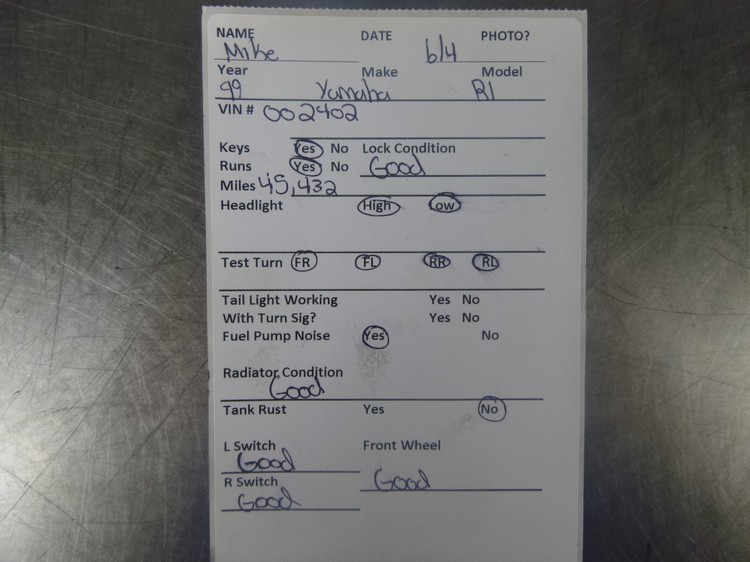 NAME DATE PHOTO?
Mike 6/4
Year Make Model
99 Yamaha R1
VIN # 002402
Keys Yes No Lock Condition
Runs Yes No Good
Miles 45,432
Headlight High Low
Test Turn FR FL RR RL
Tail Light Working Yes No
With Turn Sig? Yes No
Fuel Pump Noise Yes No
Radiator Condition
Good
Tank Rust Yes No
L Switch Front Wheel
Good
R Switch Good
Good